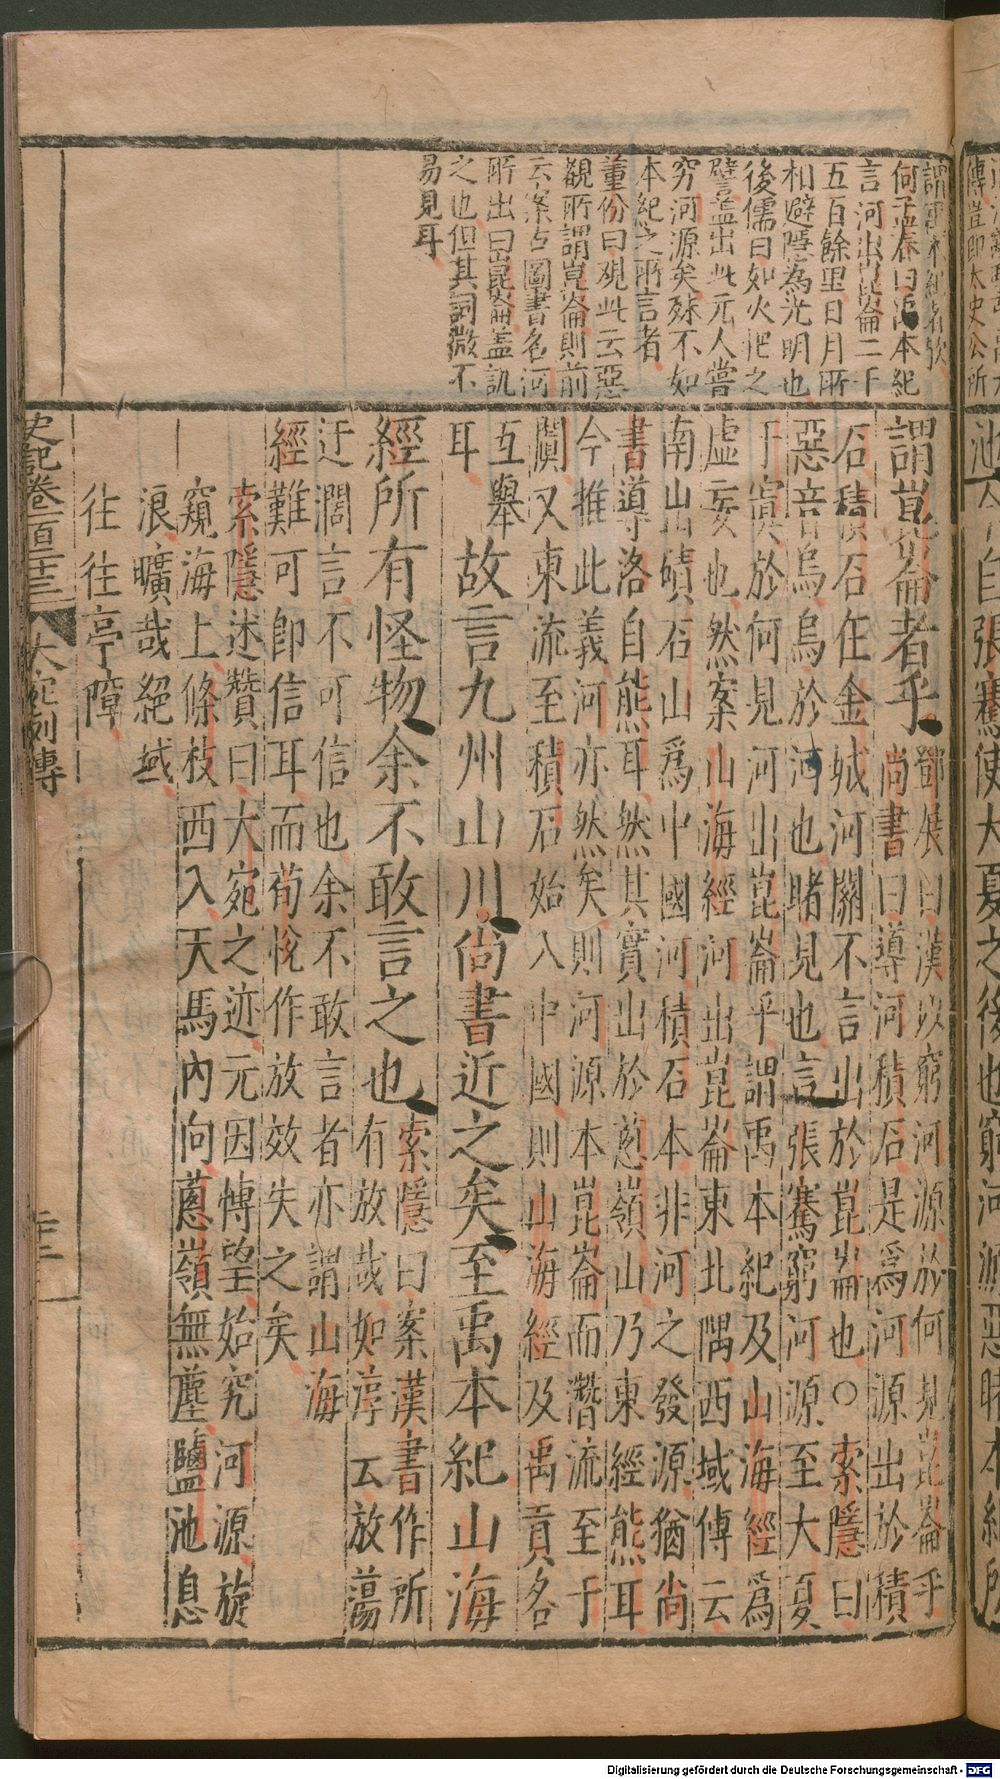 謂禹本紀者歟
何孟春曰禹本紀
言河出崑崙二千
五百餘里日月所
相避隱為光明也
後儒曰如火把之
譬蓋出此元人嘗
窮河源矣殊不如
本紀之所言者
董份曰觀此云惡
覩所謂崑崙則前
云案古圖書名河
所出曰崑崙蓋訊
之也但其詞微不
易見耳
謂崑崙者乎
鄧展曰漢以窮河源於何見崑崙乎
尚書曰導河積石是爲河源出於積
石積石在金城河關不言出於崑崙也○索隱曰
惡音烏烏於河也睹見也言張騫窮河源至大夏
于窴於何見河出崑崙乎謂禹本紀及山海經爲
虛妄也然案山海經河出崑崙東北隅西域傳云
南山出磧石山爲中國河積石本非河之發源猶尚
書導洛自熊耳然其實出於蔥嶺山乃東經熊耳
今推此義河亦然矣則河源本崑崙而潛流至于
闐又東流至積石始入中國則山海經及禹貢各
互舉
耳
故言九州山川尚書近之矣至禹本紀山海
經所有怪物余不敢言之也
索隱曰案漢書作所
有放哉如淳云放蕩
迂濶言不可信也余不敢言者亦謂山海
經難可卽信耳而荀悅作放效失之矣
索隱述贊曰大宛之迹元因博望始究河源旋
窺海上條枝西入天馬內向蔥嶺無塵鹽池息
浪曠哉絕域
往往亭障
史記卷一百二十三
大宛列傳
二十二
傳豈卽太史公所
池今自張騫使大夏之後也窮河源惡睹本紀所
Digitalisierung gefördert durch die Deutsche Forschungsgemeinschaft - DFG